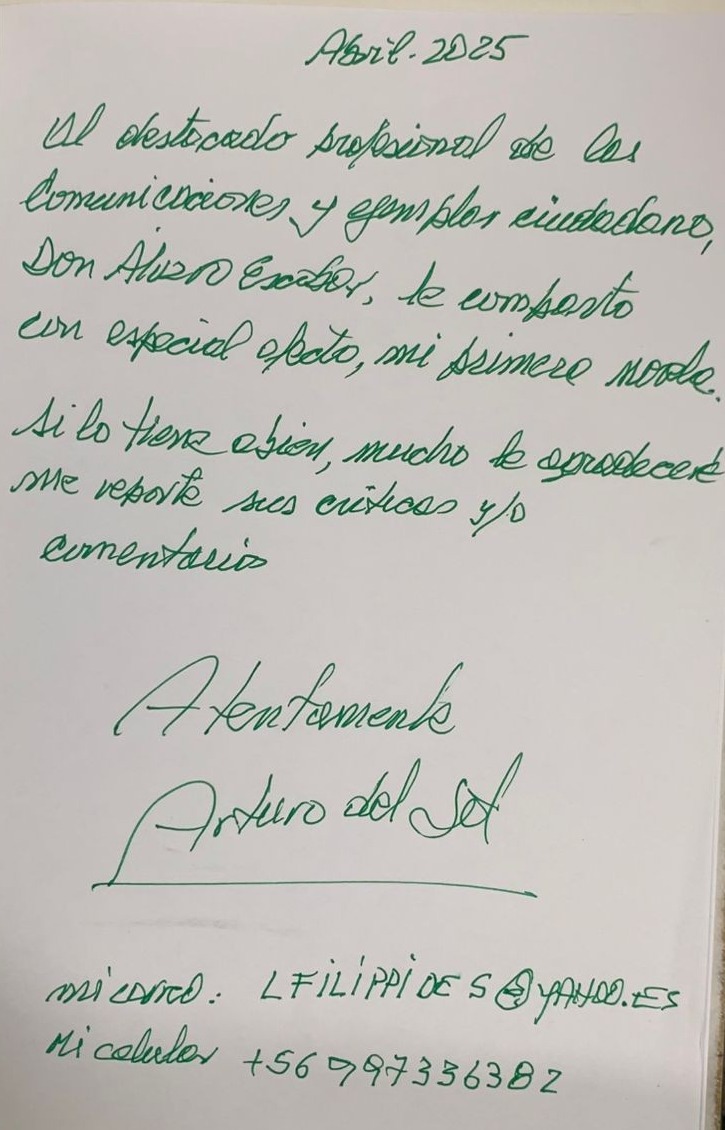 Abril. 2025
Al destacado profesional de las
Comunicaciones, y ejemplar ciudadano,
Don Álvaro Escobar, le comparto
con especial afecto, mi primera novela.
Si lo tiene abien, mucho le agradeceré
me reporte sus críticas y/o
comentarios
Atentamente
Arturo del Sol
mi correo: LFILIPPIDES@YAHOO.ES
Mi celular +56 997336382